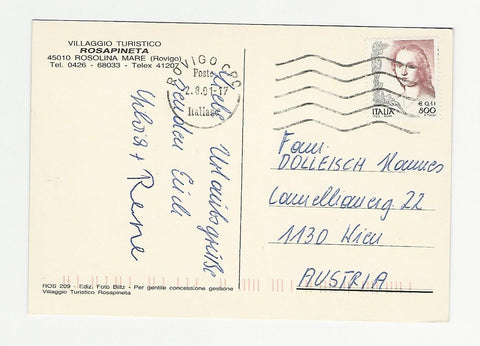 VILLAGGIO TURISTICO
ROSAPINETA
45010 ROSOLINA MARE (Rovigo)
Tel. 0426 - 68033 - Telex 41207
ROVIGO CPO
Poste
2.8.01-17
Italiane
€ 0,41
800
ITALIA
Liebe Urlaubsgrüße
senden Euch
Sylvia + Rene
Fam.
DOLLEISCH Hannes
1130 Wien
AUSTRIA
ROS 209 - Ediz. Foto Blitz - Per gentile concessione gestione
Villaggio Turistico Rosapineta